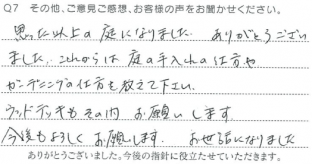 Q7 その他、ご意見ご感想、お客様の声をお聞かせください。
思った以上の庭になりました。ありがとうござい
ました。これからは庭の手入れの仕方や
ガーデニングの仕方を教えて下さい。
ウッドデッキもその内お願いします。
今後もよろしくお願します。お世話になりました
ありがとうございました。今後の指針に役立たせていただきます。